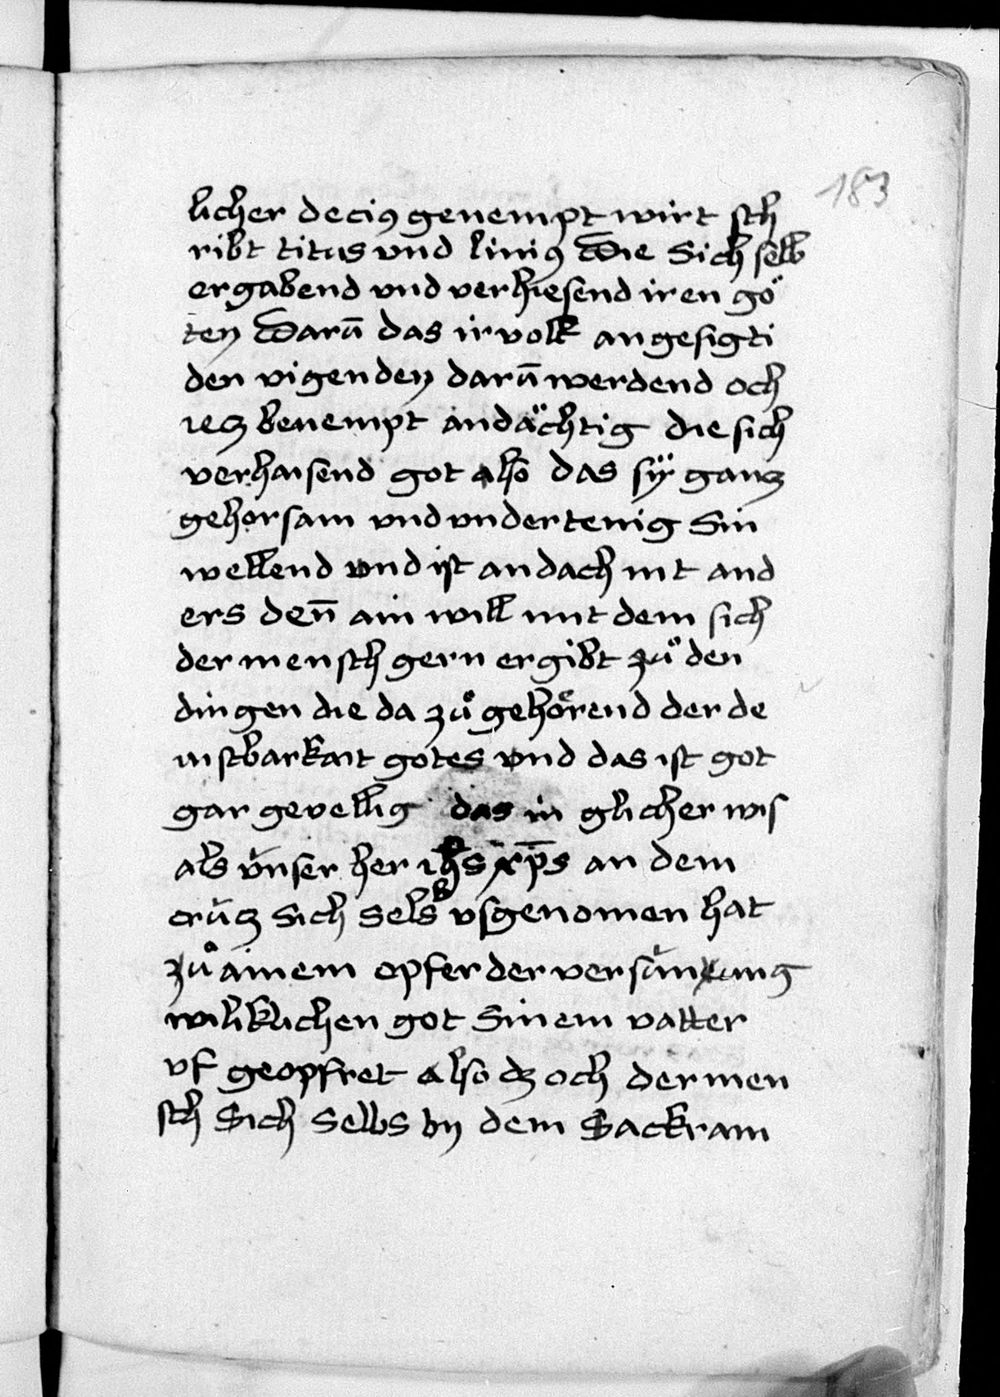 183
licher deciꝰ genempt wirt sch
ribt titus vnd liuiꝰ Die Sich selb
ergabend vnd verhiesend iren gö
ten Darū das ir volk angesigti
den vigenden darū werdend och
iecz benempt andächtig die sich
verhaisend got also das sÿ gancz
gehorsam vnd vndertenig Sin
wellend vnd ist andach nit and
ers den̄ ain will mit dem sich
der mensch gern ergibt zuͦ den
dingen die da zuͦ gehoͤrend der de
instbarkait gotes vnd das ist got
gar gevellig das in glicher wis
als vnser her ihs xp̄s an dem
crücz Sich selbs vsgenomen hat
zuͦ ainem opfer der versünung
wiliklichen got Sinem vatter
vf geopfret also dz och der men
sch Sich selbs by dem Sackram